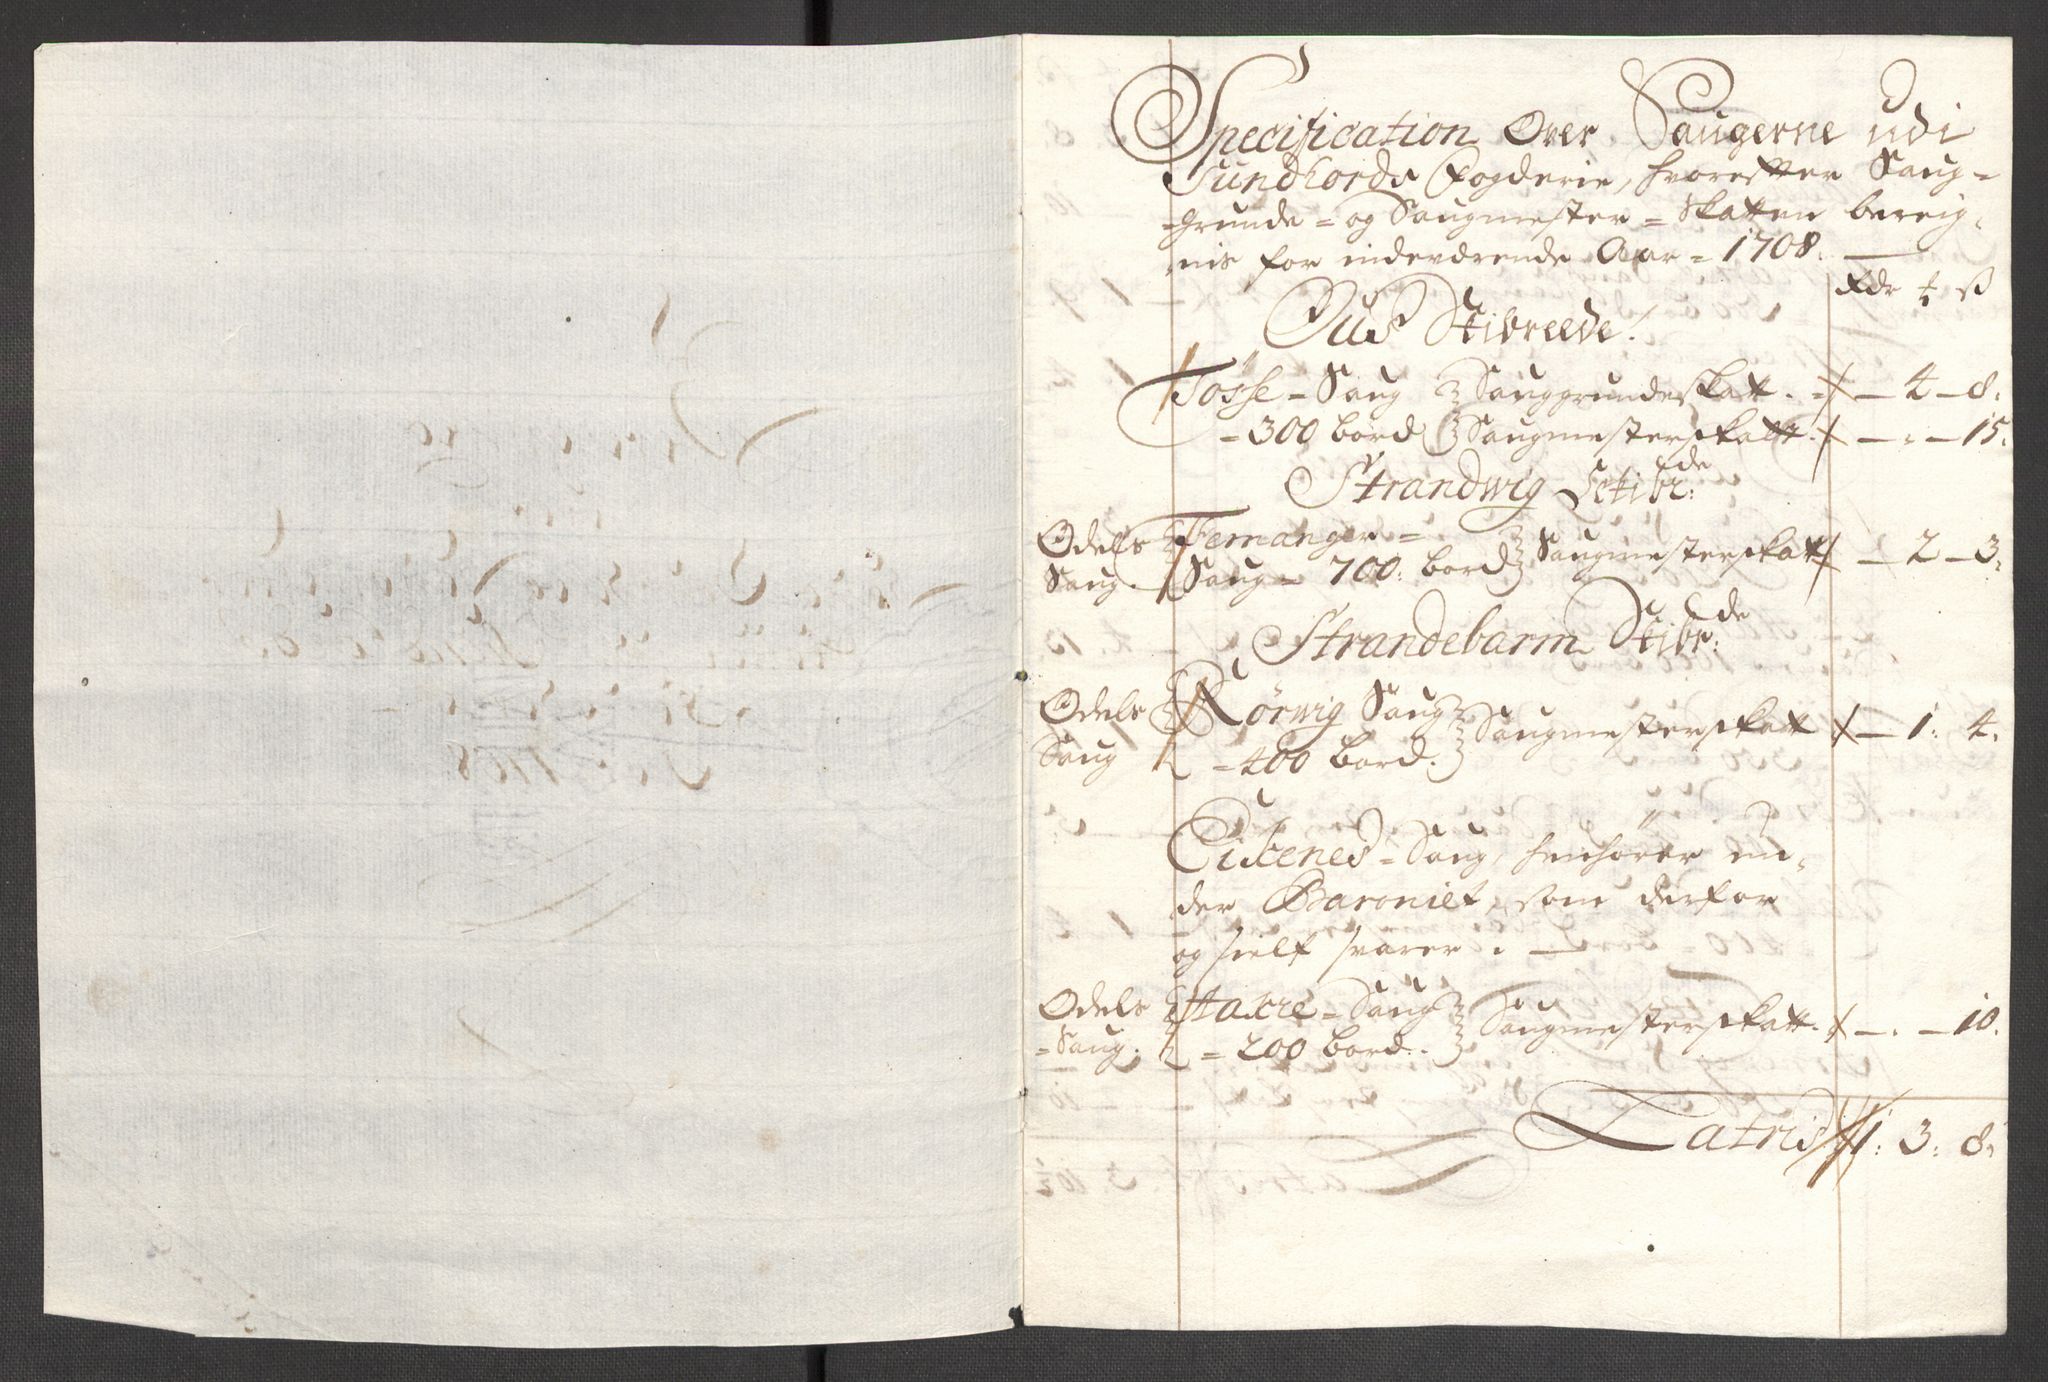 Specification Over Saugerne udi
Sundhords Fogderie, hvorefter Saug=
grunde = og Saugmester = Skatten bereig,
nis for indeværende Aar = 1708.
Rdr ß
Ous Skibreede!
Tösse = Saug Sauggrundeskatt. — 4 — 8.
= 300 bord Saugmesterskatt. — . — 15.
Strandwig Schibr:de
Odels Femanger =
Saug. Saug = 700: bord Saugmesterskatt — 2 — 3.
Strandebarm Skibr:de
Odels Rörwig Saug
Saug = 400 bord. Saugmesterskatt — 1: 4.
= Saug, henhörer un,
der Baroniet, som derfor
og sielf svarer. —
Odels = Saug
= Saug. = 200 bord. Saugmesterskatt. — . — 10.
Latris 1: 3: 8.